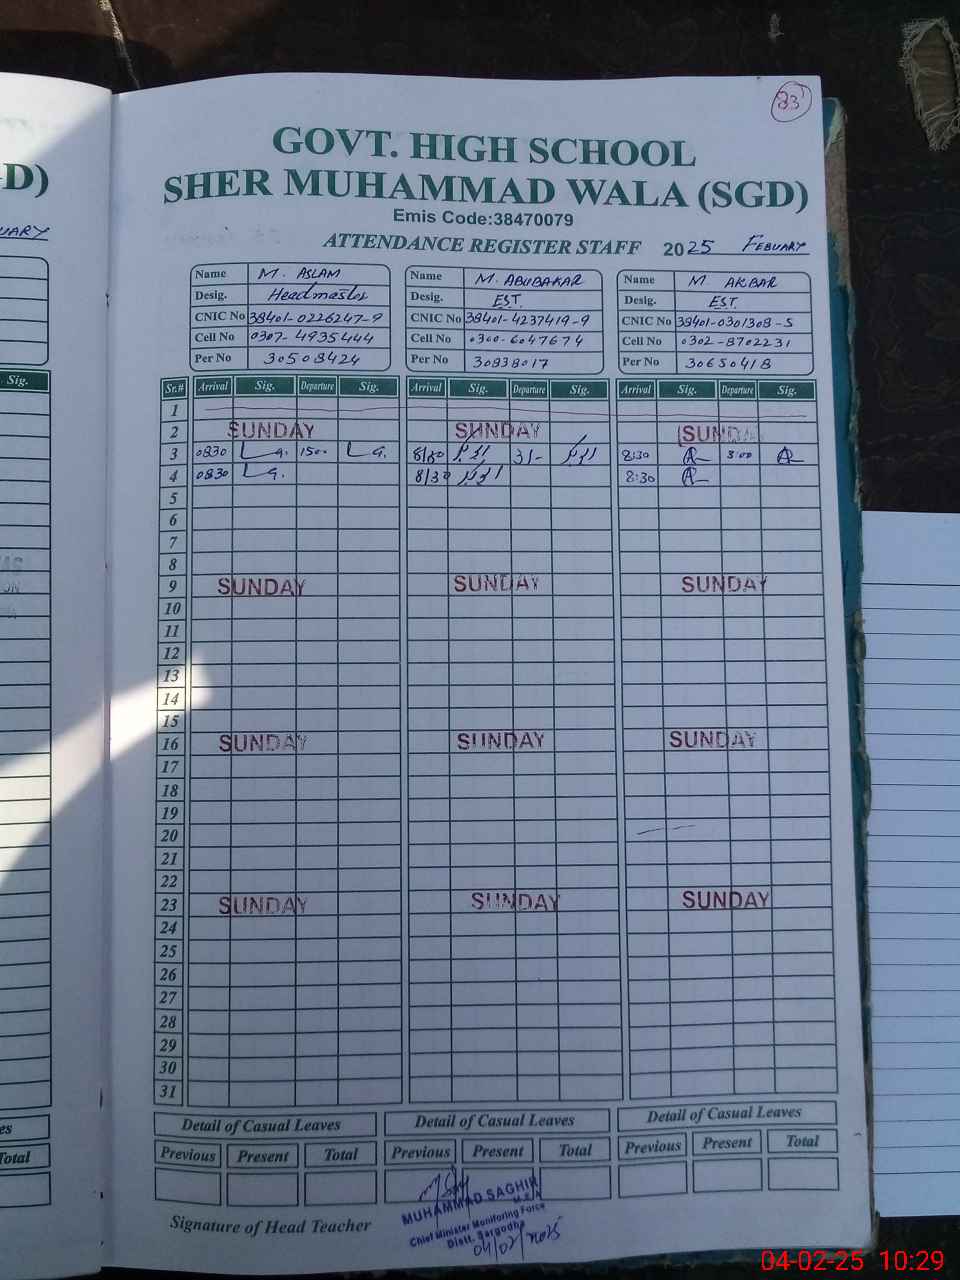 23
GOVT. HIGH SCHOOL
SHER MUHAMMAD WALA (SGD)
Emis Code:38470079
ATTENDANCE REGISTER STAFF 2025 FEBUARY
Name M. ASLAM
Desig. Headmaster
CNIC No 38401-0226247-9
Cell No 0307-4935444
Per No 30508424
Name M. ABUBAKAR
Desig. EST.
CNIC No 38401-4237419-9
Cell No 0300-6047674
Per No 30838017
Name M. AKBAR
Desig. EST.
CNIC No 38401-0301308-5
Cell No 0302-8702231
Per No 30650418
Sr.# Arrival Sig. Departure Sig. Arrival Sig. Departure Sig. Arrival Sig. Departure Sig.
1
2 SUNDAY SUNDAY SUNDAY
3 0830 1500 3/- 8:30 3:00
4 0830 8/30 8:30
5
6
7
8
9 SUNDAY SUNDAY SUNDAY
10
11
12
13
14
15
16 SUNDAY SUNDAY SUNDAY
17
18
19
20
21
22
23 SUNDAY SUNDAY SUNDAY
24
25
26
27
28
29
30
31
Detail of Casual Leaves Detail of Casual Leaves Detail of Casual Leaves
Previous Present Total Previous Present Total Previous Present Total
Signature of Head Teacher
MUHAMMAD SAGHIR
M.E.A
Chief Minister Monitoring Force
Distt. Sargodha
04/02/2025
D)
UARY
Sig.
es
Total
04-02-25 10:29